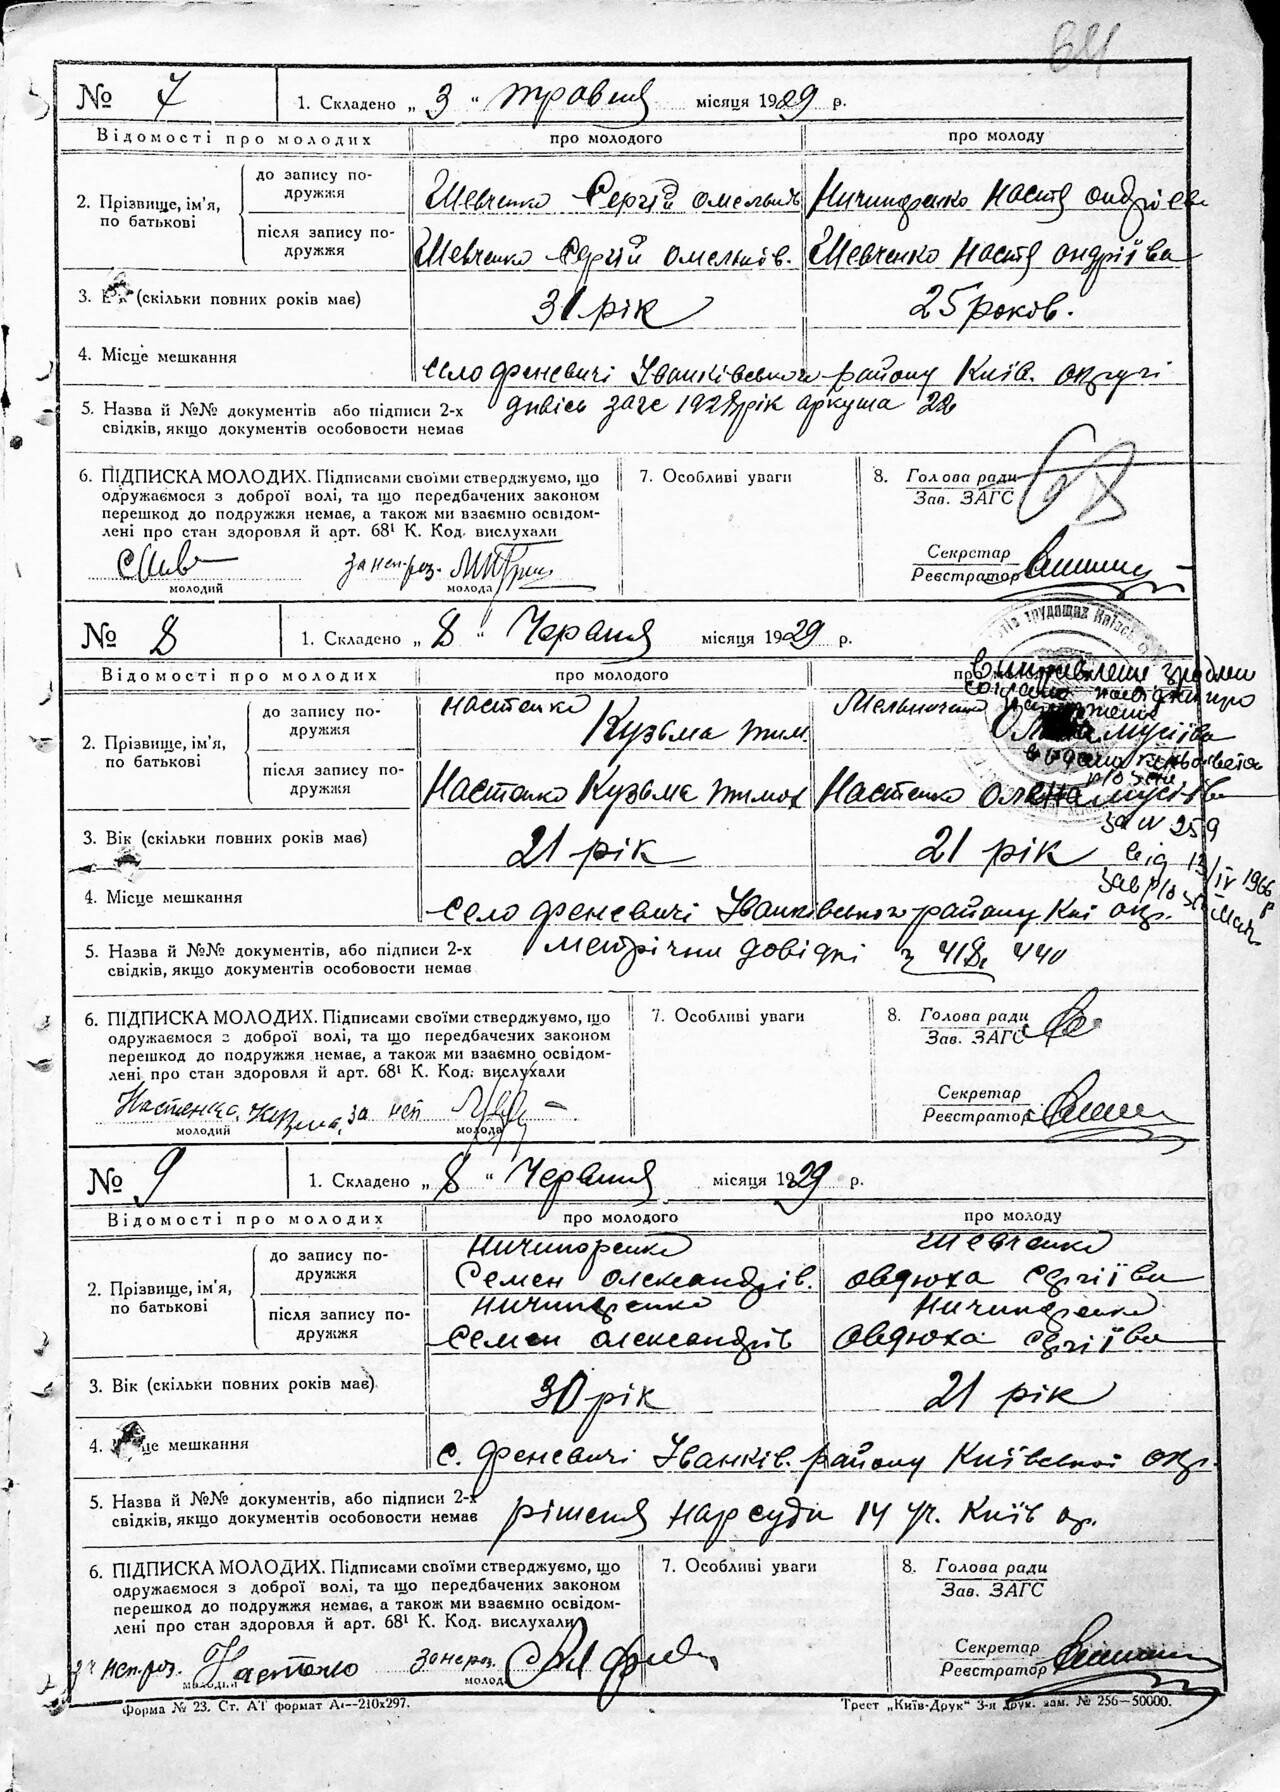 № 7
1. Складено „ 3 “ травня місяця 1929 р.
Відомості про молодих про молодого про молоду
2. Прізвище, ім'я, по батькові
до запису подружжя
Шевченко Сергій Омелянів Ничипоренко Настя Андріїв
після запису подружжя
Шевченко Сергій Омелянів. Шевченко Настя Андріїва
3. (скільки повних років має) 31 рік 25 років.
4. Місце мешкання село Феневичі Іванківського району Київ. округи
5. Назва й №№ документів або підписи 2-х
свідків, якщо документів особовости немає
загс 1928 рік аркуша
6. ПІДПИСКА МОЛОДИХ. Підписами своїми стверджуємо, що
одружаємося з доброї волі, та що передбачених законом
перешкод до подружжя немає, а також ми взаємно освідом-
лені про стан здоровля й арт. 68¹ К. Код. вислухали
за неп-роз.
молодий молода
7. Особливі уваги
8. Голова ради
Зав. ЗАГС
Секретар
Реєстратор
№ 8
1. Складено „ 8 “ Червня місяця 1929 р.
Відомості про молодих про молодого
2. Прізвище, ім'я, по батькові
до запису подружжя
Настенко Кузьма Тим. Мельниченко Мусіїва
після запису подружжя
Настенко Кузьма Тимох Настенко Олена Мусіїв
виправлення
за № 259
від 13/IV 1966 р
3. Вік (скільки повних років має) 21 рік 21 рік
4. Місце мешкання село Феневичі Іванківського району Киї окр.
5. Назва й №№ документів, або підписи 2-х
свідків, якщо документів особовости немає
метрічни довідкі 440
6. ПІДПИСКА МОЛОДИХ. Підписами своїми стверджуємо, що
одружаємося з доброї волі, та що передбачених законом
перешкод до подружжя немає, а також ми взаємно освідом-
лені про стан здоровля й арт. 68¹ К. Код. вислухали
Настенко за неп
молодий молода
7. Особливі уваги
8. Голова ради
Зав. ЗАГС
Секретар
Реєстратор
№ 9
1. Складено „ 8 “ Червня місяця 1929 р.
Відомості про молодих про молодого про молоду
2. Прізвище, ім'я, по батькові
до запису подружжя
Ничипоренко Шевченко
Семен Олександрів. Овдюха Сергіїва
після запису подружжя
Ничипоренко Ничипоренко
Семен Олександрів Овдюха Сергіїва
3. Вік (скільки повних років має) 30 рік 21 рік
4. це мешкання с. Феневичі Іванків. району Київської окр.
5. Назва й №№ документів, або підписи 2-х
свідків, якщо документів особовости немає
рішеня нарсуду 14 уч. Київ ор.
6. ПІДПИСКА МОЛОДИХ. Підписами своїми стверджуємо, що
одружаємося з доброї волі, та що передбачених законом
перешкод до подружжя немає, а також ми взаємно освідом-
лені про стан здоровля й арт. 68¹ К. Код. вислухали
за неп-роз. Настенко за непроз.
молодий молода
7. Особливі уваги
8. Голова ради
Зав. ЗАГС
Секретар
Реєстратор
Форма № 23. Ст. АГ формат А₄—210х297. Трест „Київ-Друк“ 3-я друк. зам. № 256—50000.